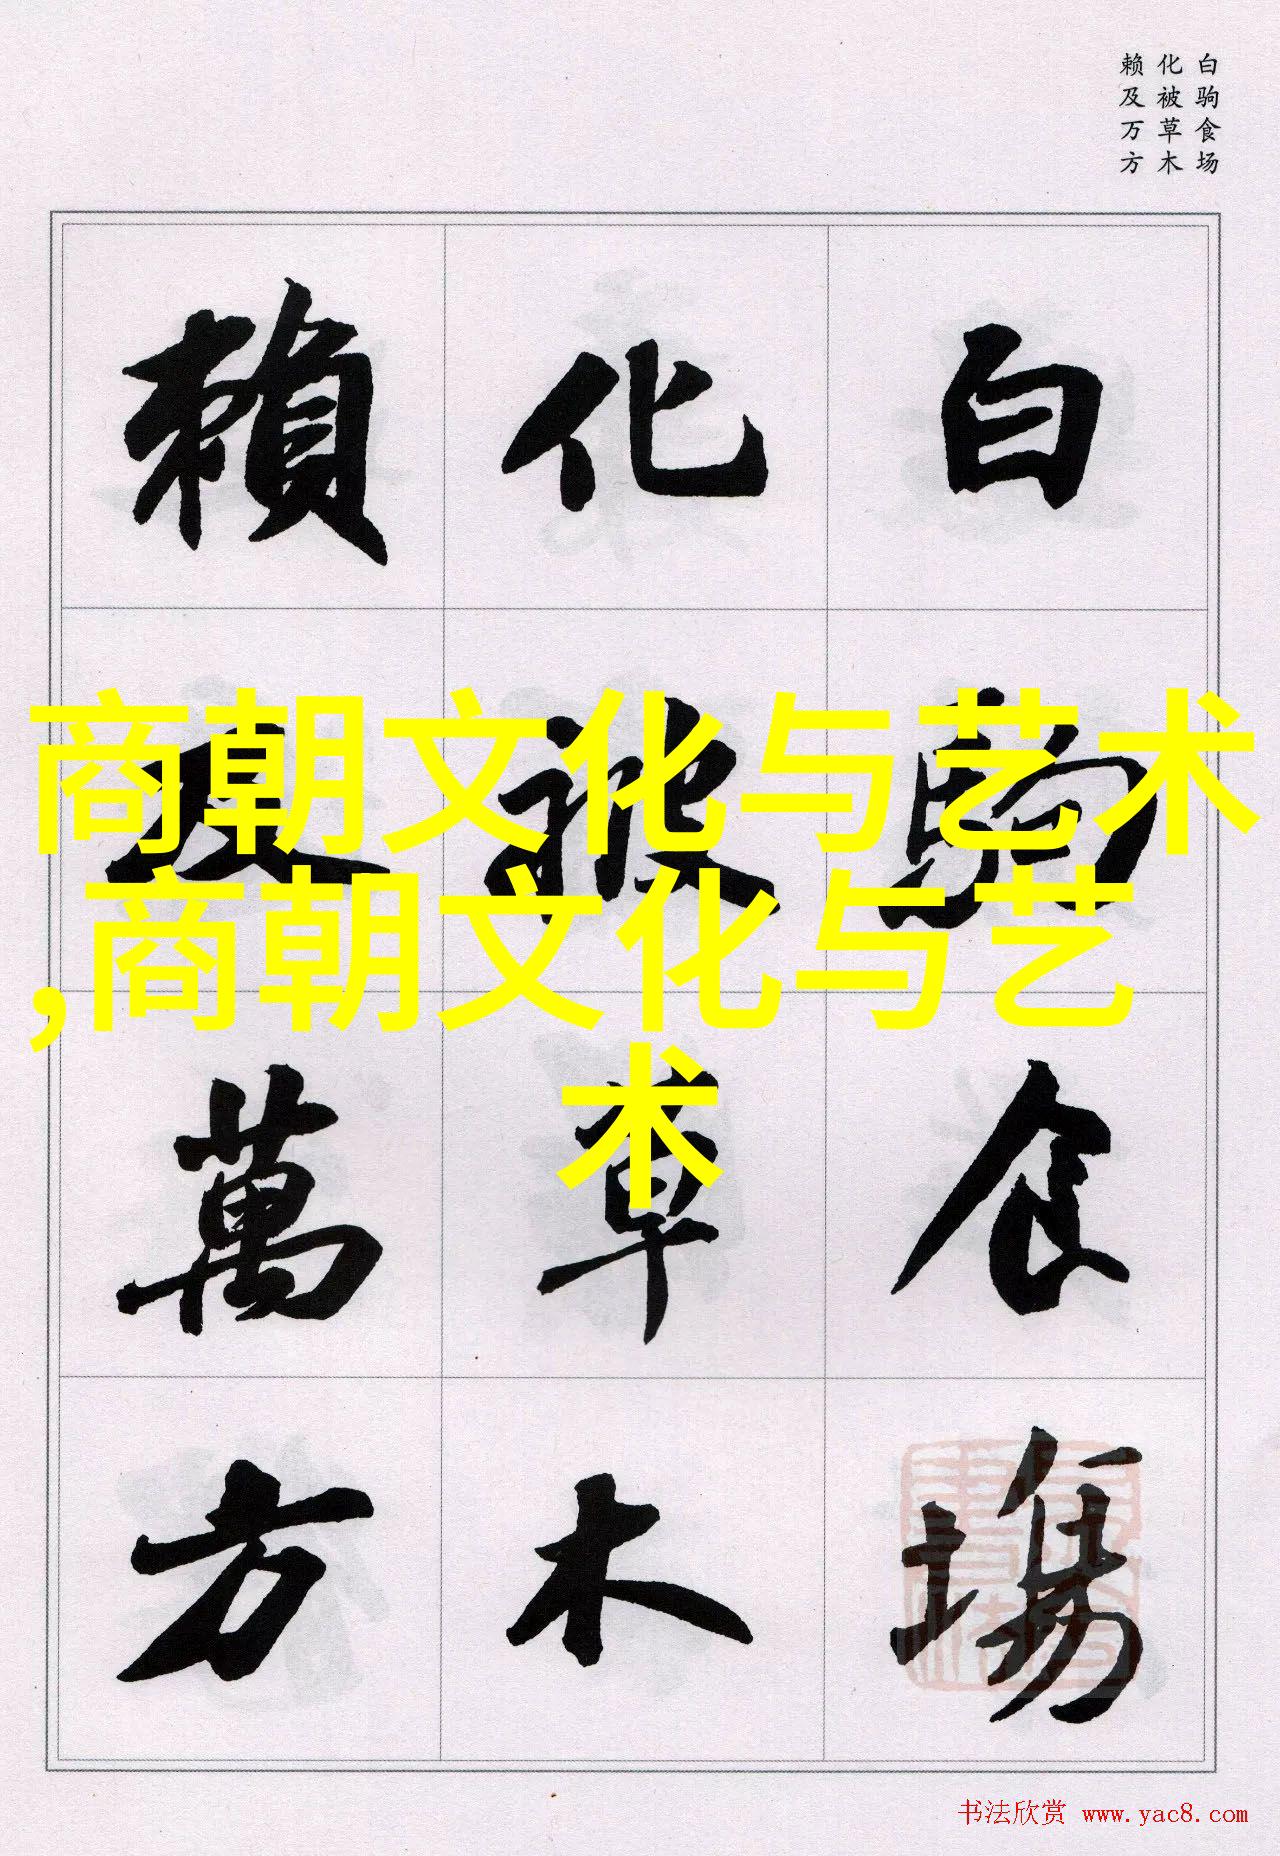 白驹食场
化被草木
赖及万方
白駒食場
化被草木
賴及萬方
商朝文化与艺术
,商朝文化与艺
术
书法欣赏 www.yac8.com